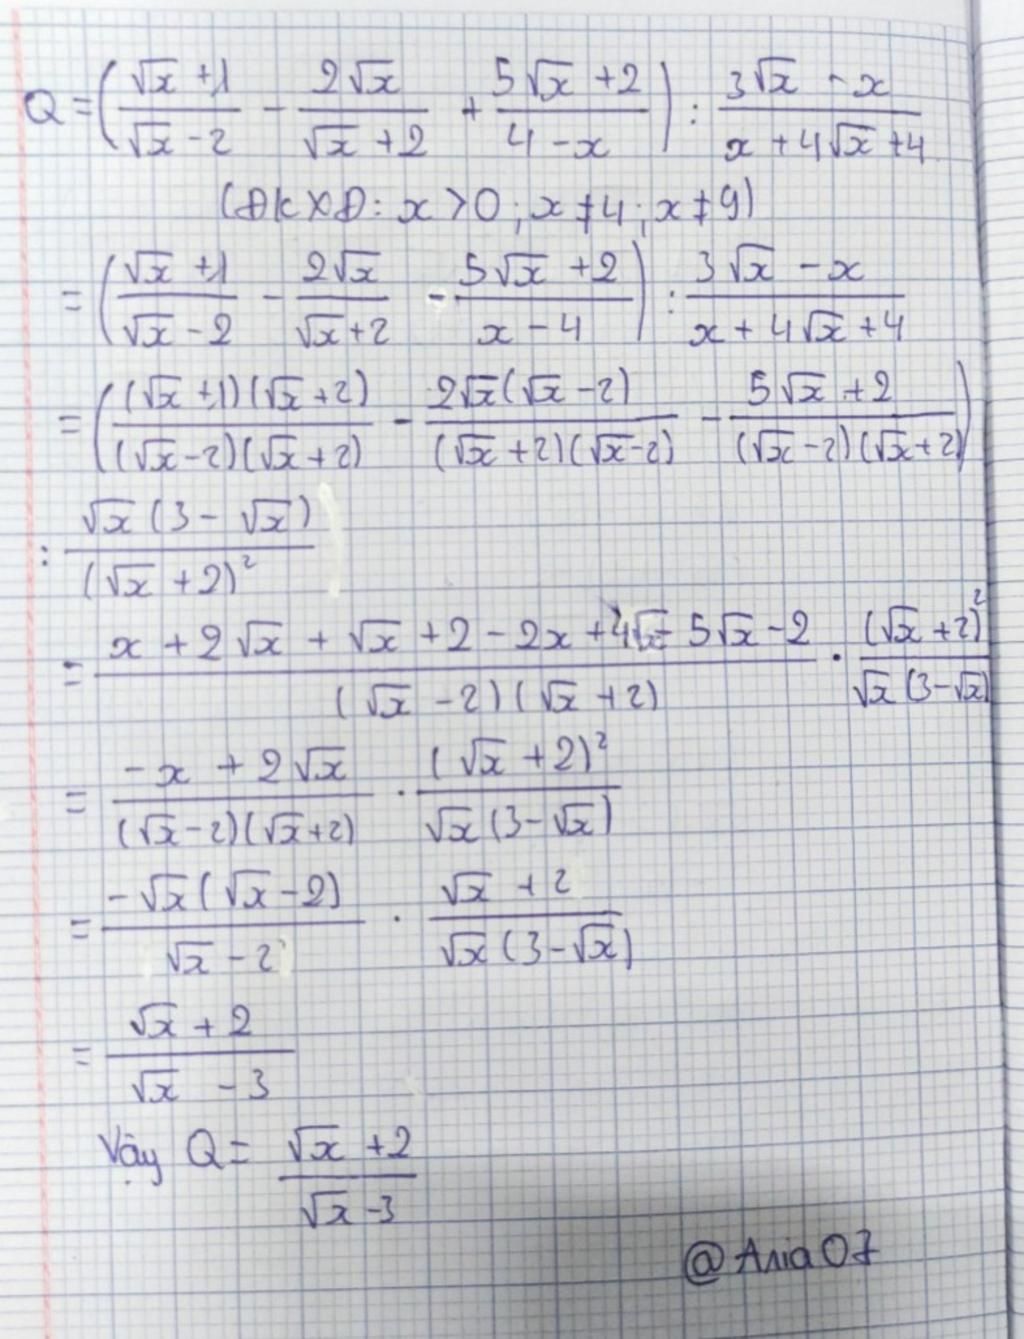 Q = ( (√x + 1)/(√x - 2) - (2√x)/(√x + 2) + (5√x + 2)/(4 - x) ) : (3√x - x)/(x + 4√x + 4)
(ĐKXĐ: x > 0 ; x ≠ 4 ; x ≠ 9)
= ( (√x + 1)/(√x - 2) - (2√x)/(√x + 2) - (5√x + 2)/(x - 4) ) : (3√x - x)/(x + 4√x + 4)
= ( ((√x + 1)(√x + 2))/((√x - 2)(√x + 2)) - (2√x(√x - 2))/((√x + 2)(√x - 2)) - (5√x + 2)/((√x - 2)(√x + 2)) )
: (√x(3 - √x))/((√x + 2)²)
= (x + 2√x + √x + 2 - 2x + 4√x - 5√x - 2)/((√x - 2)(√x + 2)) . ((√x + 2)²)/(√x(3 - √x))
= (-x + 2√x)/((√x - 2)(√x + 2)) . ((√x + 2)²)/(√x(3 - √x))
= (-√x(√x - 2))/(√x - 2) . (√x + 2)/(√x(3 - √x))
= (√x + 2)/(√x - 3)
Vậy Q = (√x + 2)/(√x - 3)
@Ania07